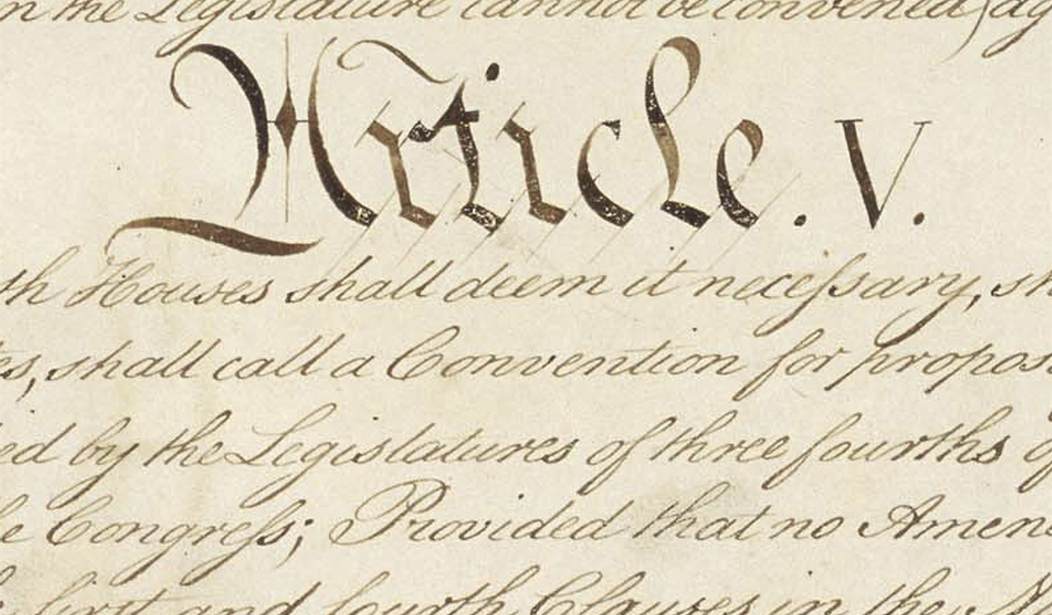 n the Legislature cannot be convened) ag
Article. V.
th Houses shall deem it neceſsary, sh
es, shall call a Convention for propos
ed by the Legislatures of three fourths of
e Congreſs; Provided that no Amend
first and fourth Clauses in the N